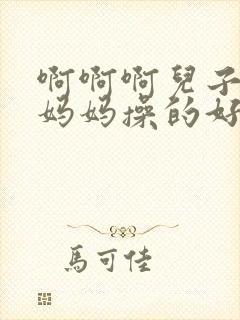 啊啊啊兒子
妈妈操的好
馬可佳